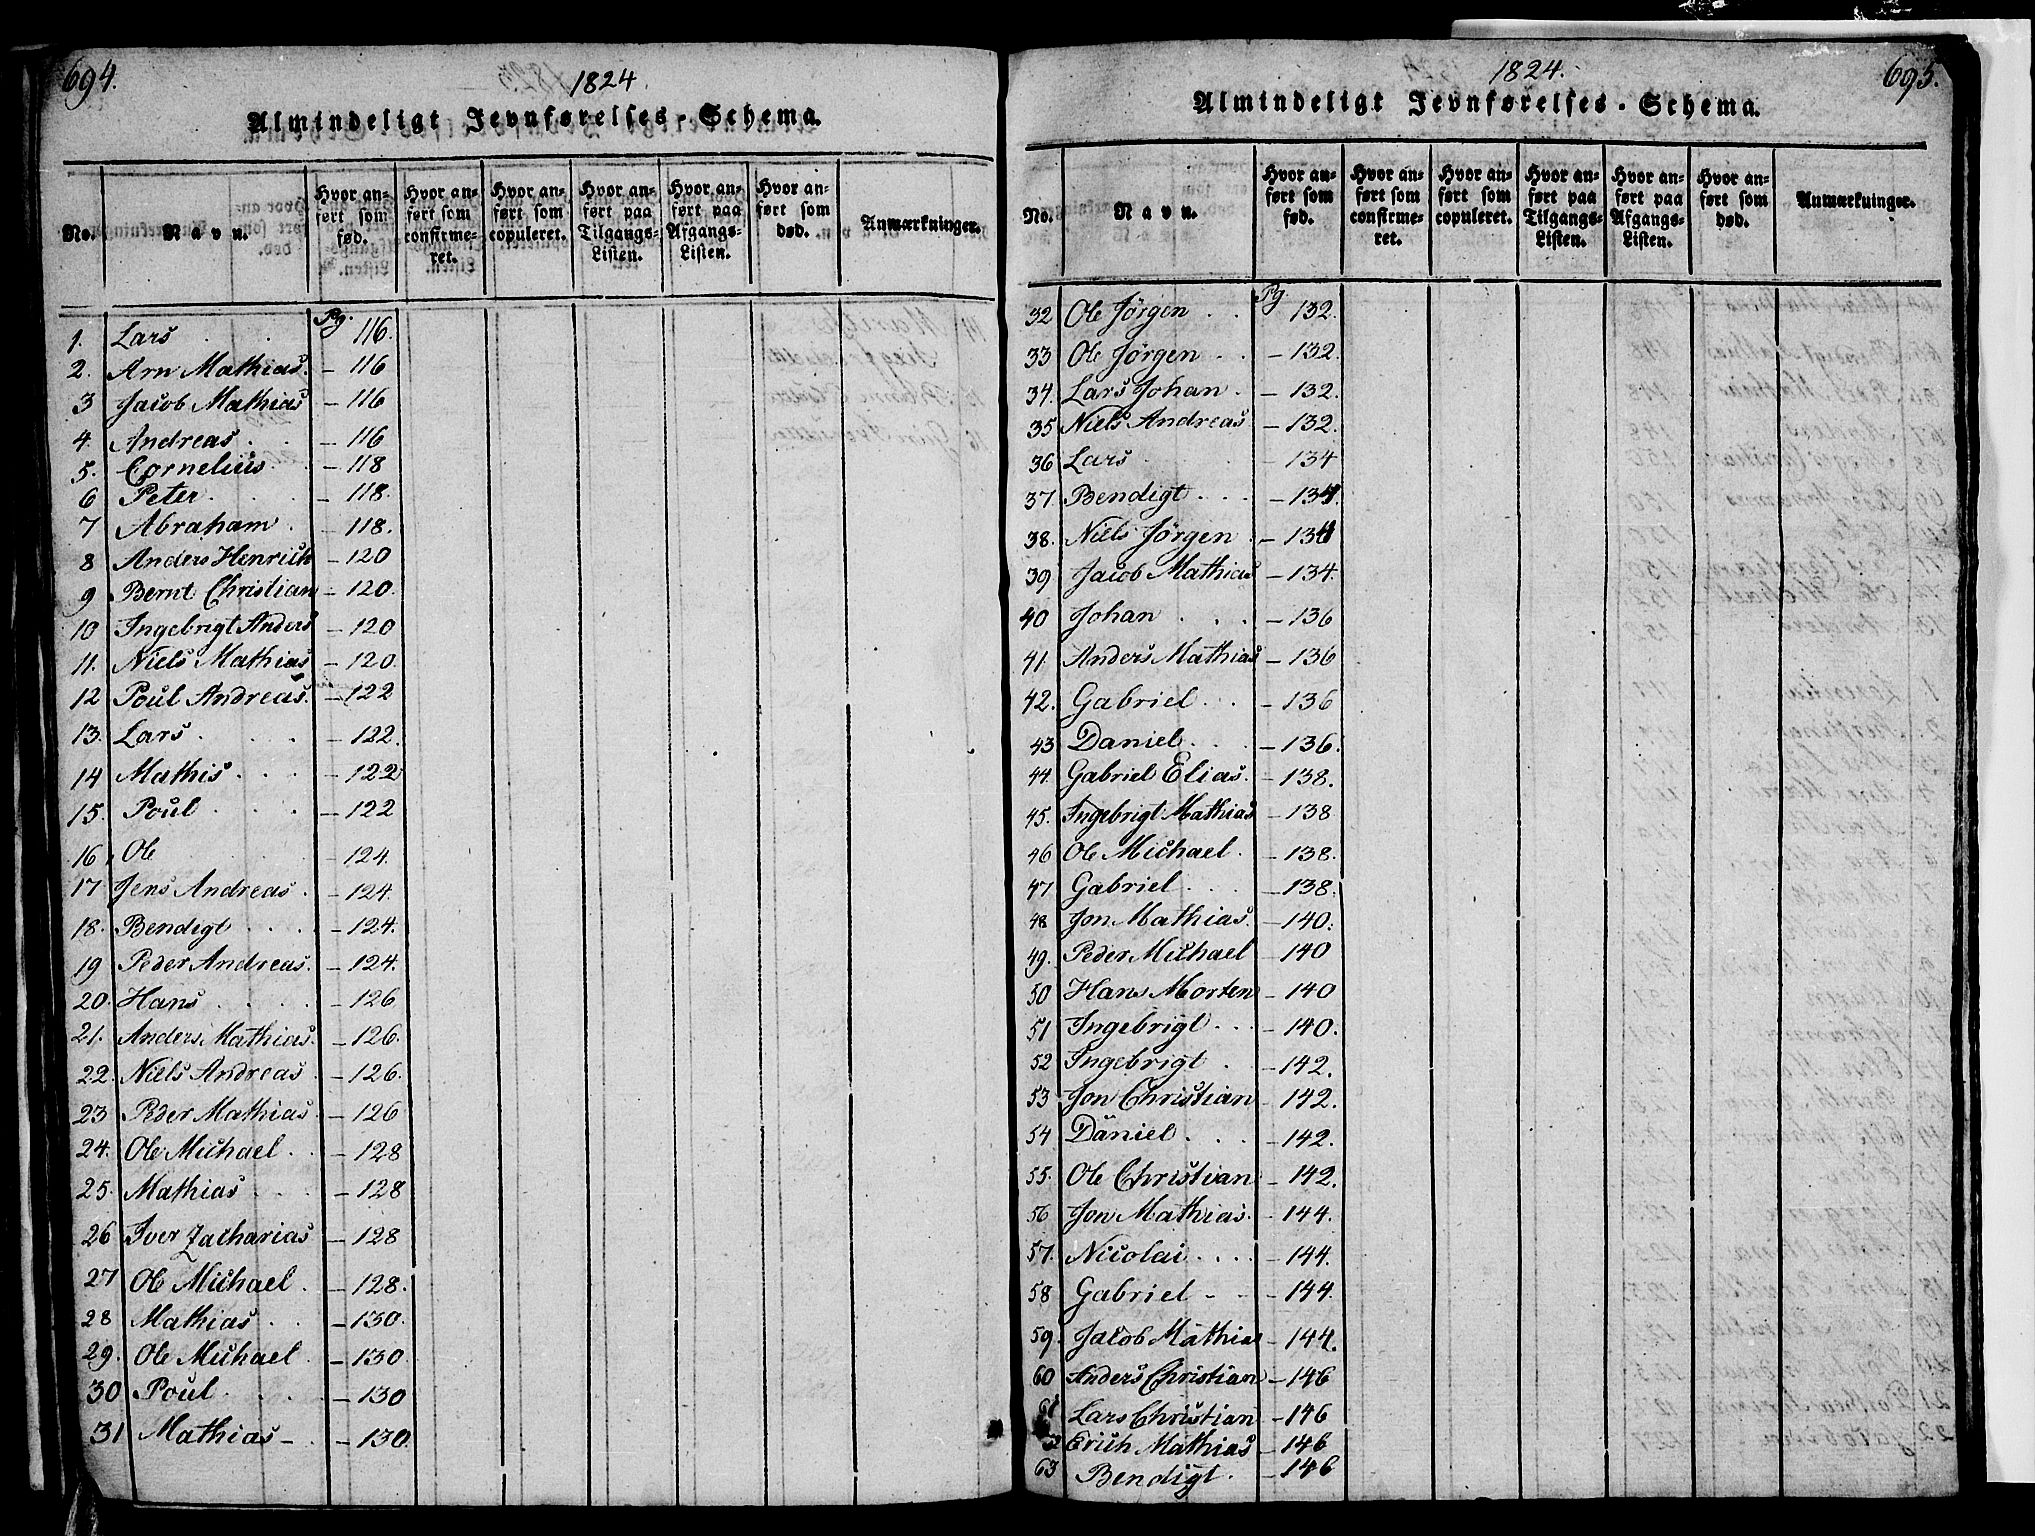 694.
1824
Almindeligt Jevnførelses-Schema.
No.
Navn.
Hvor anført som fød.
Hvor anført som confirmeret.
Hvor anført som copuleret.
Hvor anført paa Tilgangs-Listen.
Hvor anført paa Afgangs-Listen.
Hvor anført som død.
Anmærkninger.
1. Lars Pg. 116.
2. Arn Mathias. – 116
3 Jacob Mathias – 116
4. Andreas – 116
5. Cornelius – 118
6 Peter – 118.
7 Abraham – 118.
8 Anders Henrich – 120
9 Bernt Christian – 120.
10 Ingebrigt Anders – 120
11. Niels Mathias – 120.
12 Poul Andreas. – 122
13. Lars – 122.
14 Mathis – 122
15. Poul – 122
16 Ole – 124.
17 Jens Andreas – 124.
18. Bendigt – 124.
19 Peder Andreas. – 124.
20. Hans – 126
21. Anders Mathias. – 126.
22. Niels Andreas – 126.
23 Peder Mathias – 126
24. Ole Michael – 128
25. Mathias – 128
26 Iver Zacharias – 128
27 Ole Michael – 128.
28 Mathias – 130.
29. Ole Michael – 130
30 Poul – 130
31 Mathias – 130.
695.
1824.
Almindeligt Jevnførelses-Schema.
No.
Navn.
Hvor anført som fød.
Hvor anført som confirmeret.
Hvor anført som copuleret.
Hvor anført paa Tilgangs-Listen.
Hvor anført paa Afgangs-Listen.
Hvor anført som død.
Anmærkninger.
32 Ole Jörgen Pg 132.
33 Ole Jörgen – 132.
34. Lars Johan – 132.
35 Niels Andreas – 132.
36 Lars – 134
37. Bendigt – 134.
38. Niels Jörgen – 134
39 Jacob Mathias – 134.
40 Johan – 136
41. Anders Mathias – 136
42. Gabriel – 136
43 Daniel – 136.
44. Gabriel Elias. – 138.
45. Ingebrigt Mathias – 138
46 Ole Michael – 138.
47 Gabriel – 138.
48 Jon Mathias. – 140.
49. Peder Michael – 140
50 Hans Morten – 140
51 Ingebrigt – 140.
52 Ingebrigt – 142.
53 Jon Christian – 142.
54 Daniel – 142.
55. Ole Christian – 142.
56 Jon Mathias. – 144.
57. Nicolai – 144.
58 Gabriel – 144.
59. Jacob Mathias – 144.
60 Anders Christian – 146
61 Lars Christian – 146
Erich Mathias – 146
63 Bendigt. – 146